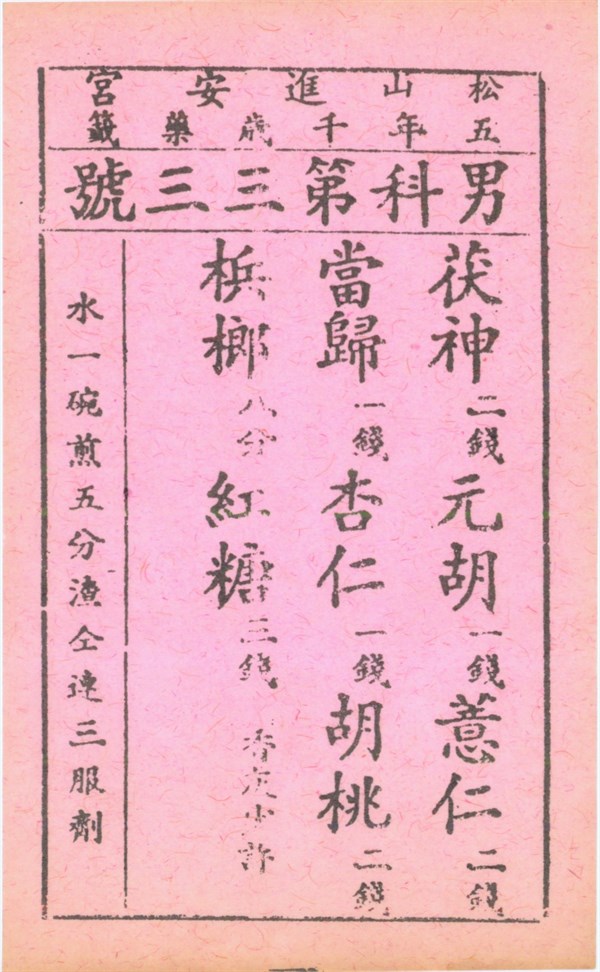 松山進安宮
五年千歲藥籤
男科第三三號
茯神二錢元胡一錢薏仁二錢
當歸一錢杏仁一錢胡桃二錢
梹榔八分紅糖三錢香灰少許
水一碗煎五分渣仝連三服劑